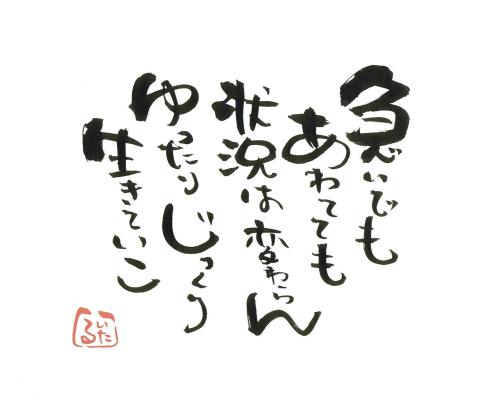 急いでも
あわてても
状況は変わらん
ゆったりじっくり
生きていこ
いたる